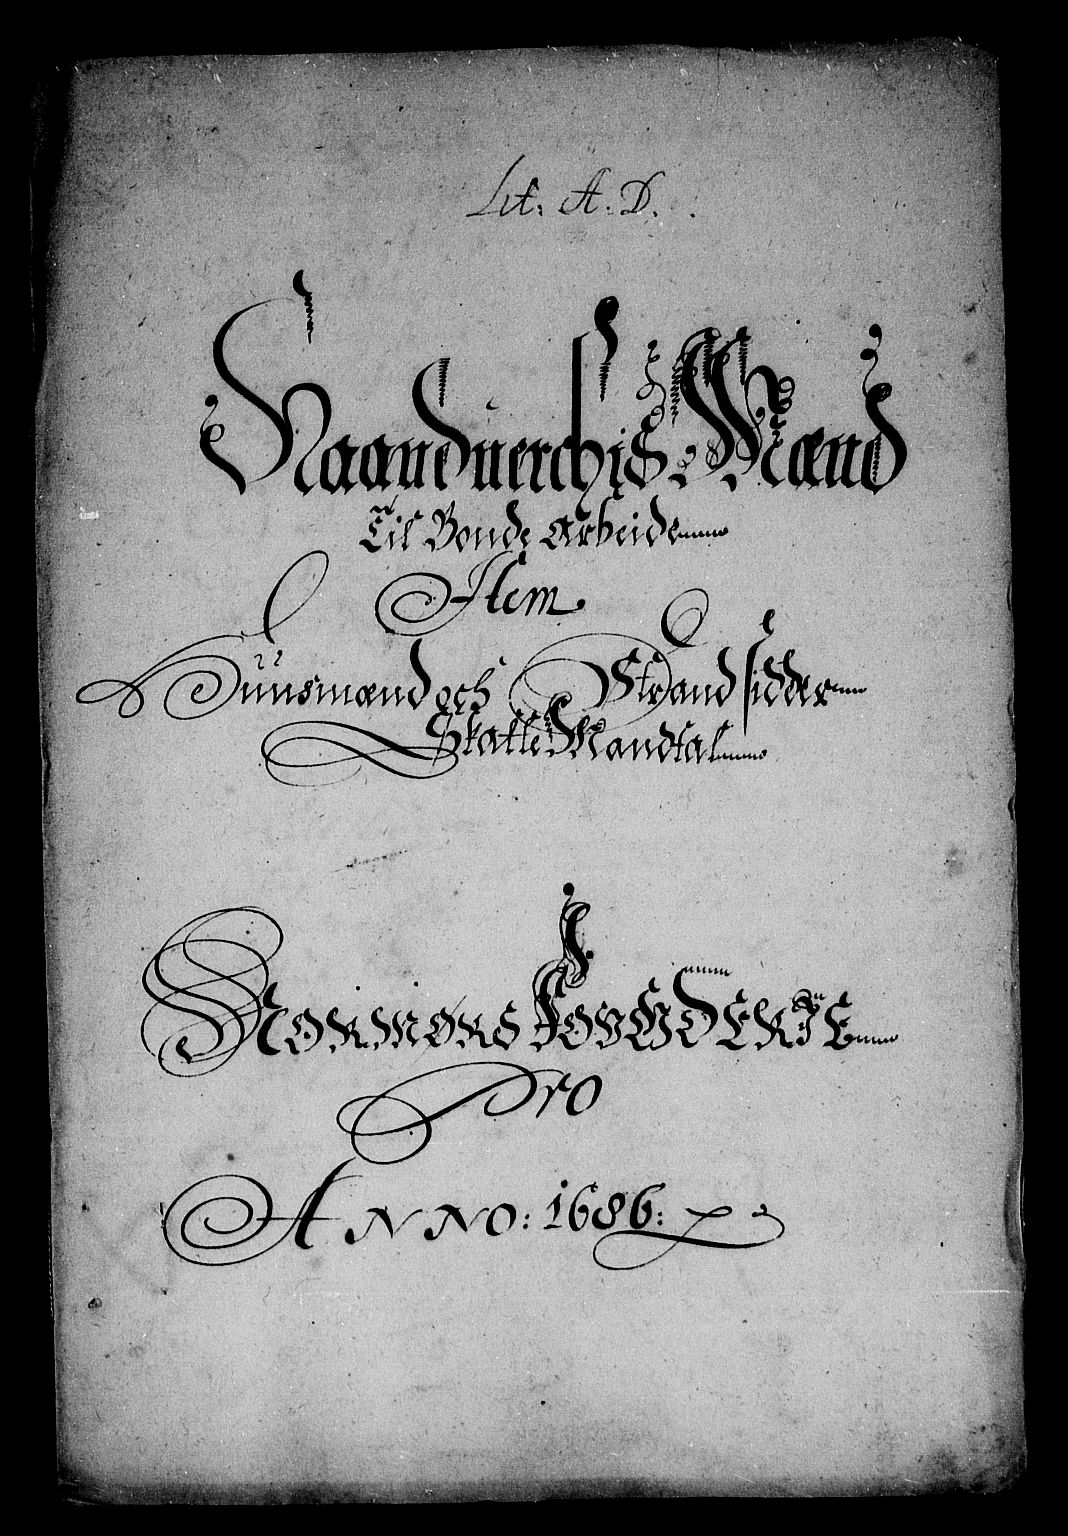 Lit. A. D.
Haanduerchis Mænd
Til Bonde Arbeide
Item
Huusmænd och Strand sidder
Skatte Mandtal
I
Normørs Fougderie
Pro
Anno: 1686: